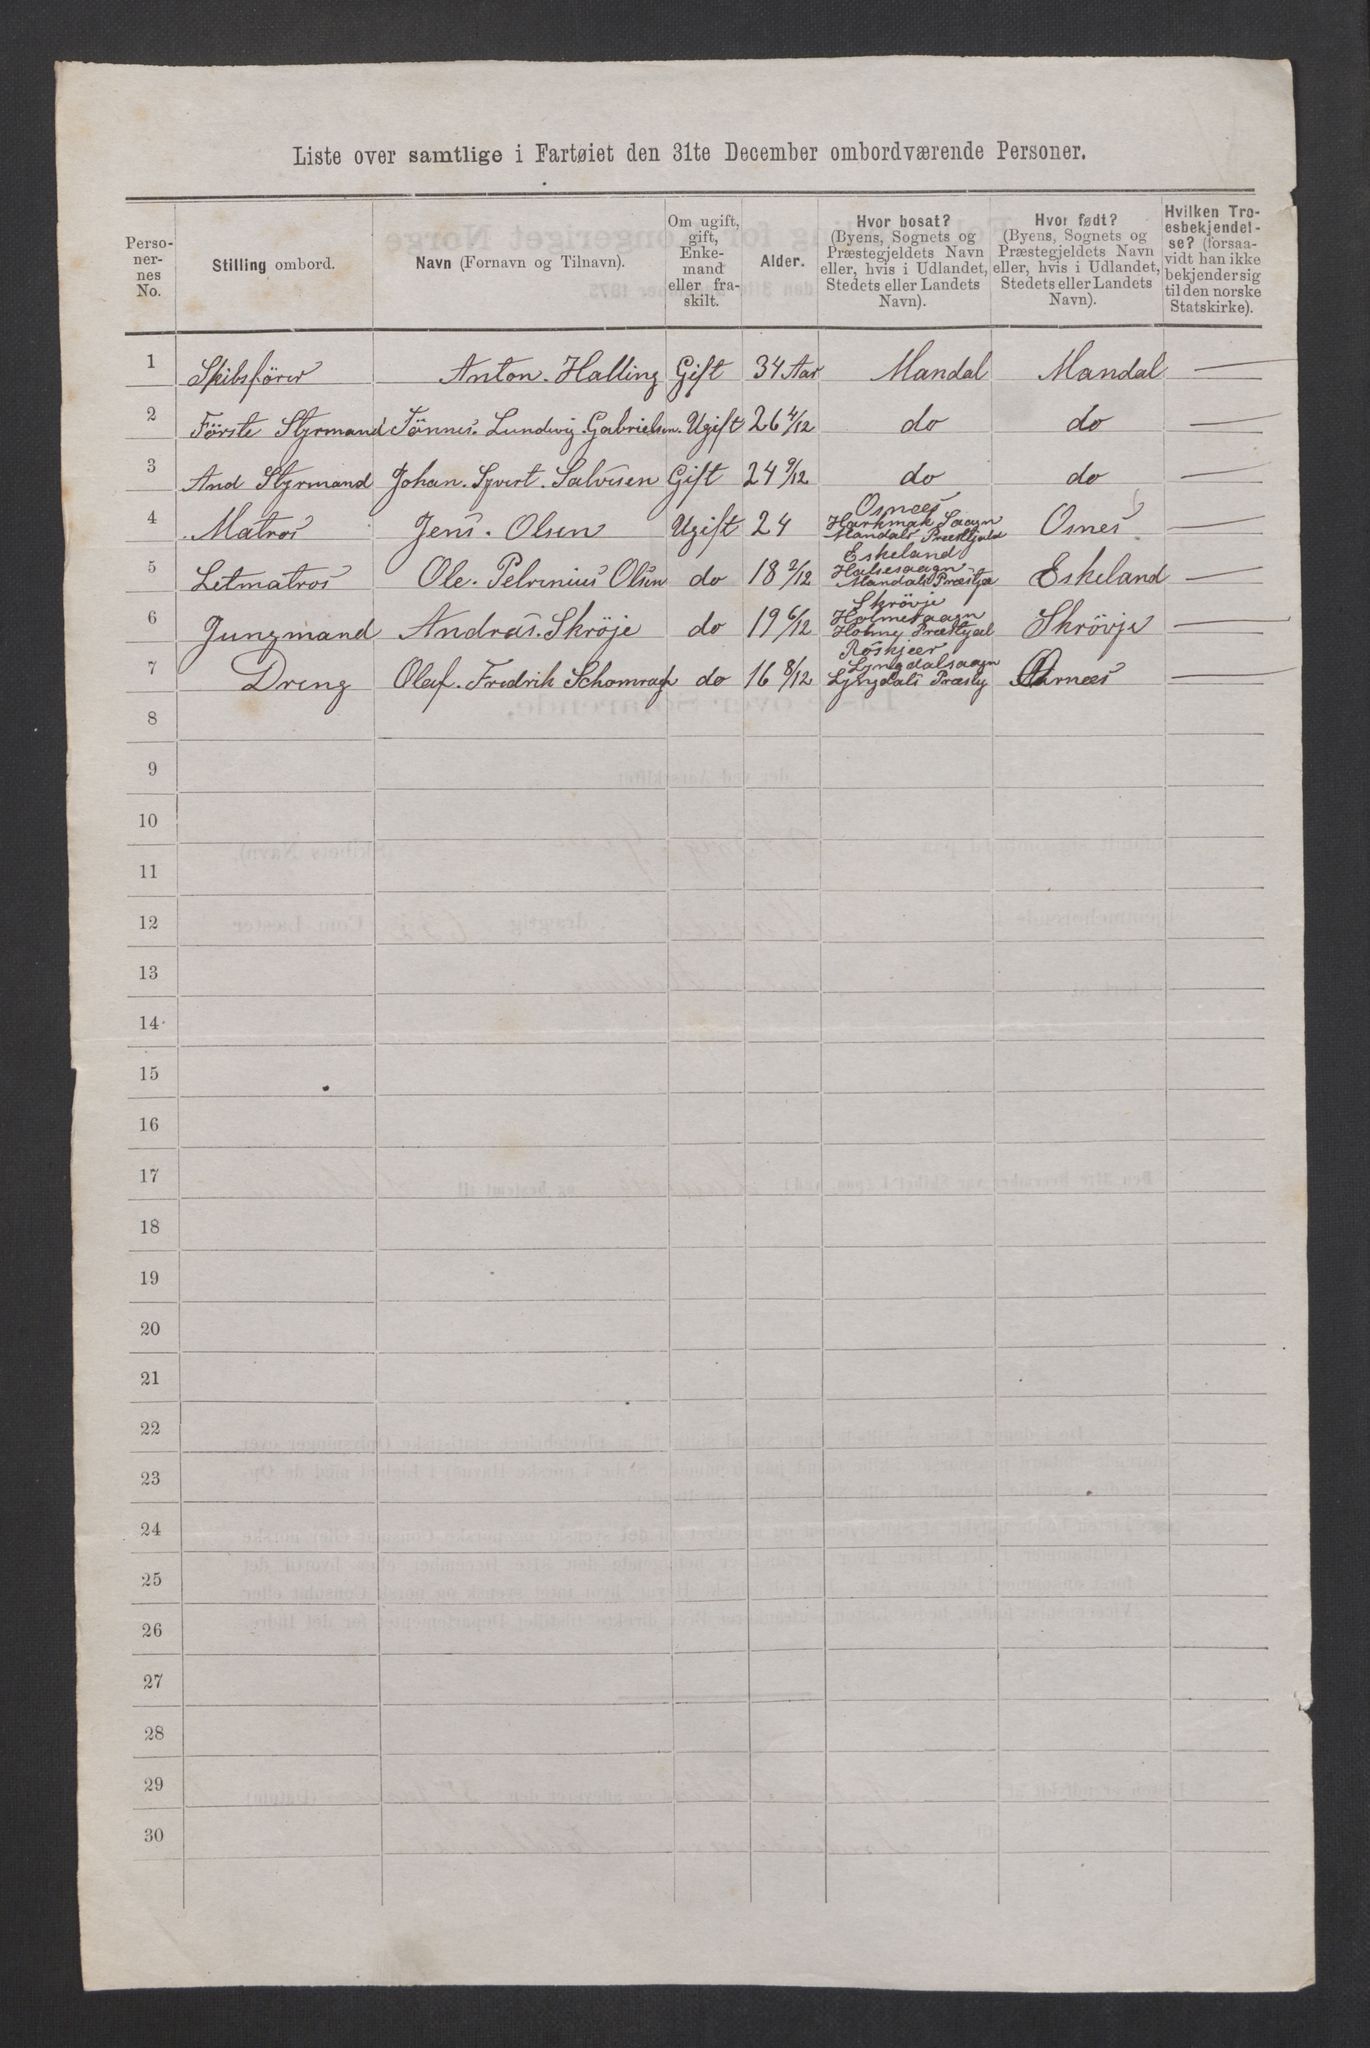 Liste over samtlige i Fartøiet den 31te December ombordværende Personer.
Perso-
ner-
nes
No.
Stilling ombord.
Navn (Fornavn og Tilnavn).
Om ugift,
gift,
Enke-
mand
eller fra-
skilt.
Alder.
Hvor bosat?
(Byens, Sognets og
Præstegjeldets Navn
eller, hvis i Udlandet,
Stedets eller Landets
Navn).
Hvor født?
(Byens, Sognets og
Præstegjeldets Navn
eller, hvis i Udlandet,
Stedets eller Landets
Navn).
Hvilken Tro-
esbekjendel-
se? (forsaa-
vidt han ikke
bekjender sig
til den norske
Statskirke).
1 Skibsförer Anton. Halling Gift 34 Aar Mandal Mandal —
2 Förste Styrmand Tönnes. Lundvig. Gabrielsen. Ugift 26 4/12 do do —
3 And Styrmand Johan. Syvert. Salvesen Gift 24 9/12 do do —
4 Matros Jens. Olsen Ugift 24 Osnees
Harkmak Saagn
Mandals Præstgjeld Osnes —
5 Letmatros Ole. Pelrenius Olsen do 18 2/12 Eskeland
Halsesaagn
Mandals Præstge Eskeland —
6 Jungmand Andras. Skröje do 19 6/12 Skrövje
Holmesaagn
Holmej Præstgjel Skrövje —
7 Dreng Olaf. Fredrik do 16 8/12 Röskjeer
Lyngdalsaagn
Lyngdals Præstg Aarnees —
8
9
10
11
12
13
14
15
16
17
18
19
20
21
22
23
24
25
26
27
28
29
30